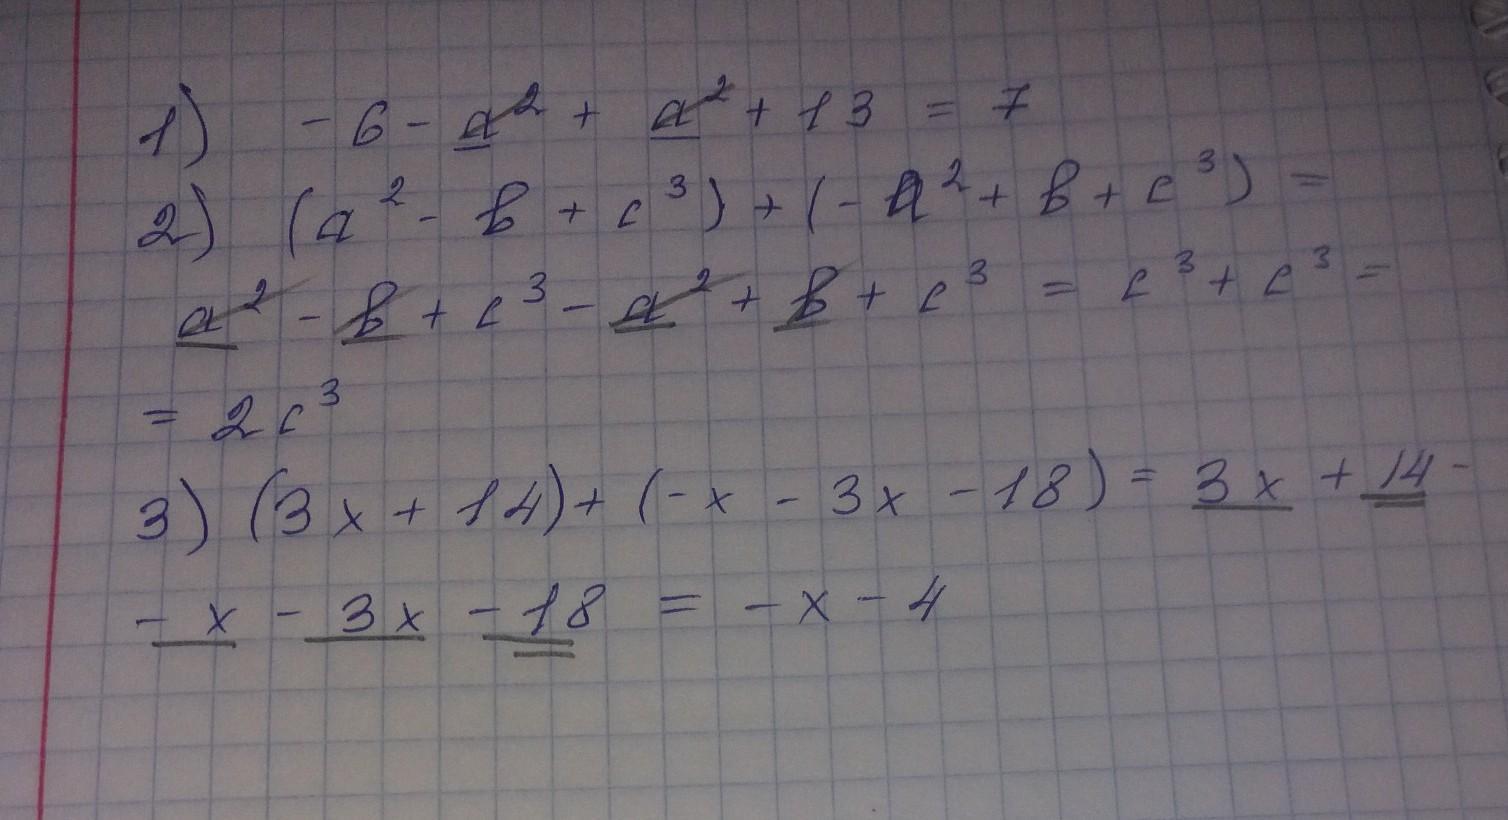 1) - 6 - a² + a² + 13 = 7
2) (a² - b + c³) + (- a² + b + c³) =
a² - b + c³ - a² + b + c³ = c³ + c³ =
= 2c³
3) (3x + 14) + (- x - 3x - 18) = 3x + 14 -
- x - 3x - 18 = - x - 4